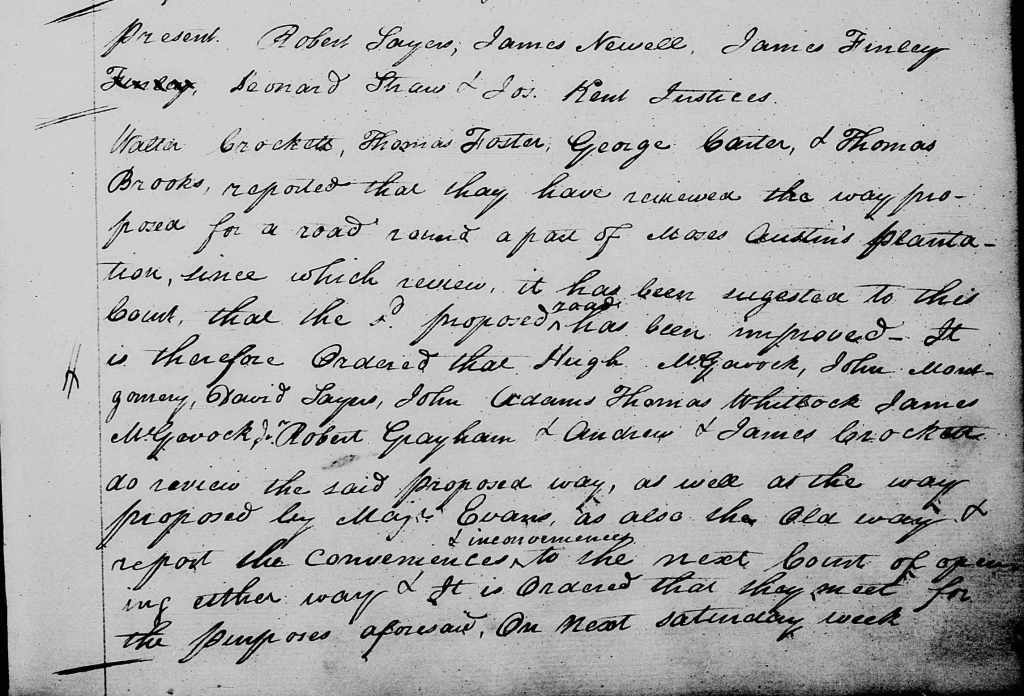 Present. Robert Sayers, James Newell, James Finley
Finley, Leonard Straw & Jos. Kent Justices.
Walter Crockett, Thomas Foster, George Carter, & Thomas
Brooks, reported that thay have reveiwed the way pro-
posed for a road round a part of Moses Austin's planta-
tion, since which review, it has been sugested to this
Court, that the sd. proposed road has been improved - It
is therefore Ordered that Hugh McGavock, John Mont-
gomery, David Sayers, John Adams Thomas Whitlock James
McGavock Jr. Robert Grayham & Andrew & James Crockett
do review the said proposed way, as well as the way
proposed by Majr. Evans, as also the Old way &
report the conveniences & inconveniences to the next Court of open-
ing either way & It is Ordered that they meet for
the purposes aforesaid, On next saturday week